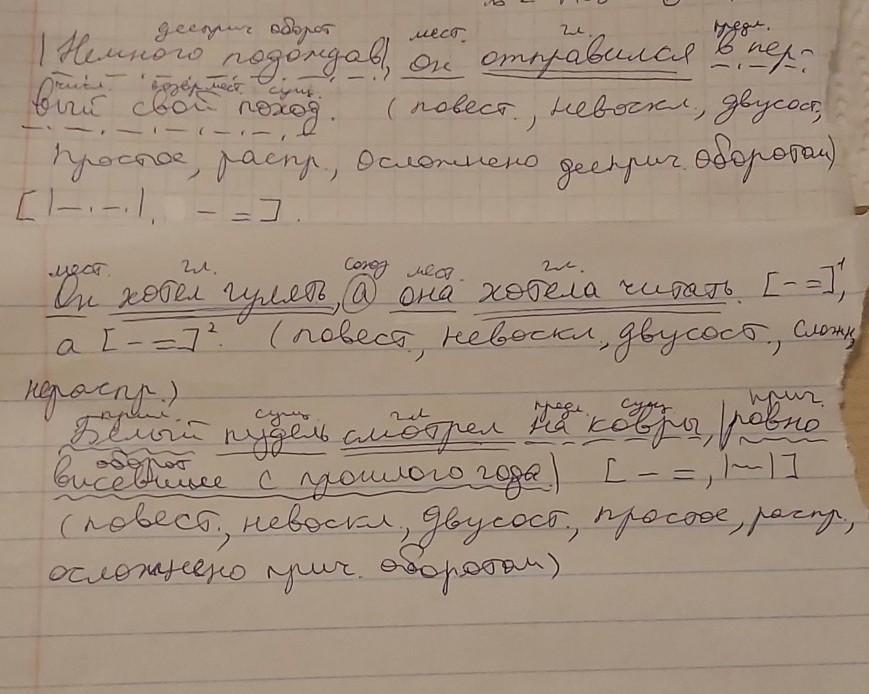 дееприч оборот мест. гл. предл.
|Немного подождав|, он отправился в пер-
числ. возвр.мест. сущ.
вый свой поход. (повест., невоскл., двусост.,
простое, распр., осложнено дееприч. оборотом)
[|—.—.|, — =].
мест. гл. союз мест. гл.
Он хотел гулять, а она хотела читать. [— =]¹,
а [— =]². (повест., невоскл., двусост., сложн.,
нераспр.)
прил сущ гл предл. сущ прич.
Белый пудель смотрел на ковры, |ровно
оборот
висевшие с прошлого года.| [— =, |~|]
(повест., невоскл., двусост., простое, распр.,
осложнено прич. оборотом)